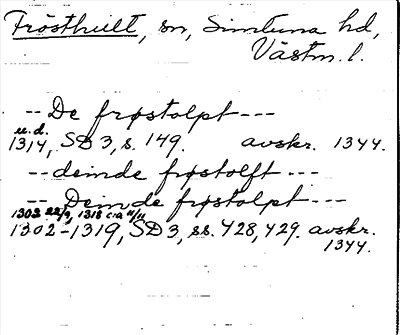 Frösthult, sn, Simtuna hd,
Västm. l.
-- De frøstolpt ---
u.d.
1314, SD 3, s. 149. avskr. 1344.
-- deinde frøstolft ---
-- Deinde frøstolpt ---
1302 22/9, 1318 c:a 11/11
1302-1319, SD 3, ss. 428, 429. avskr.
1344.